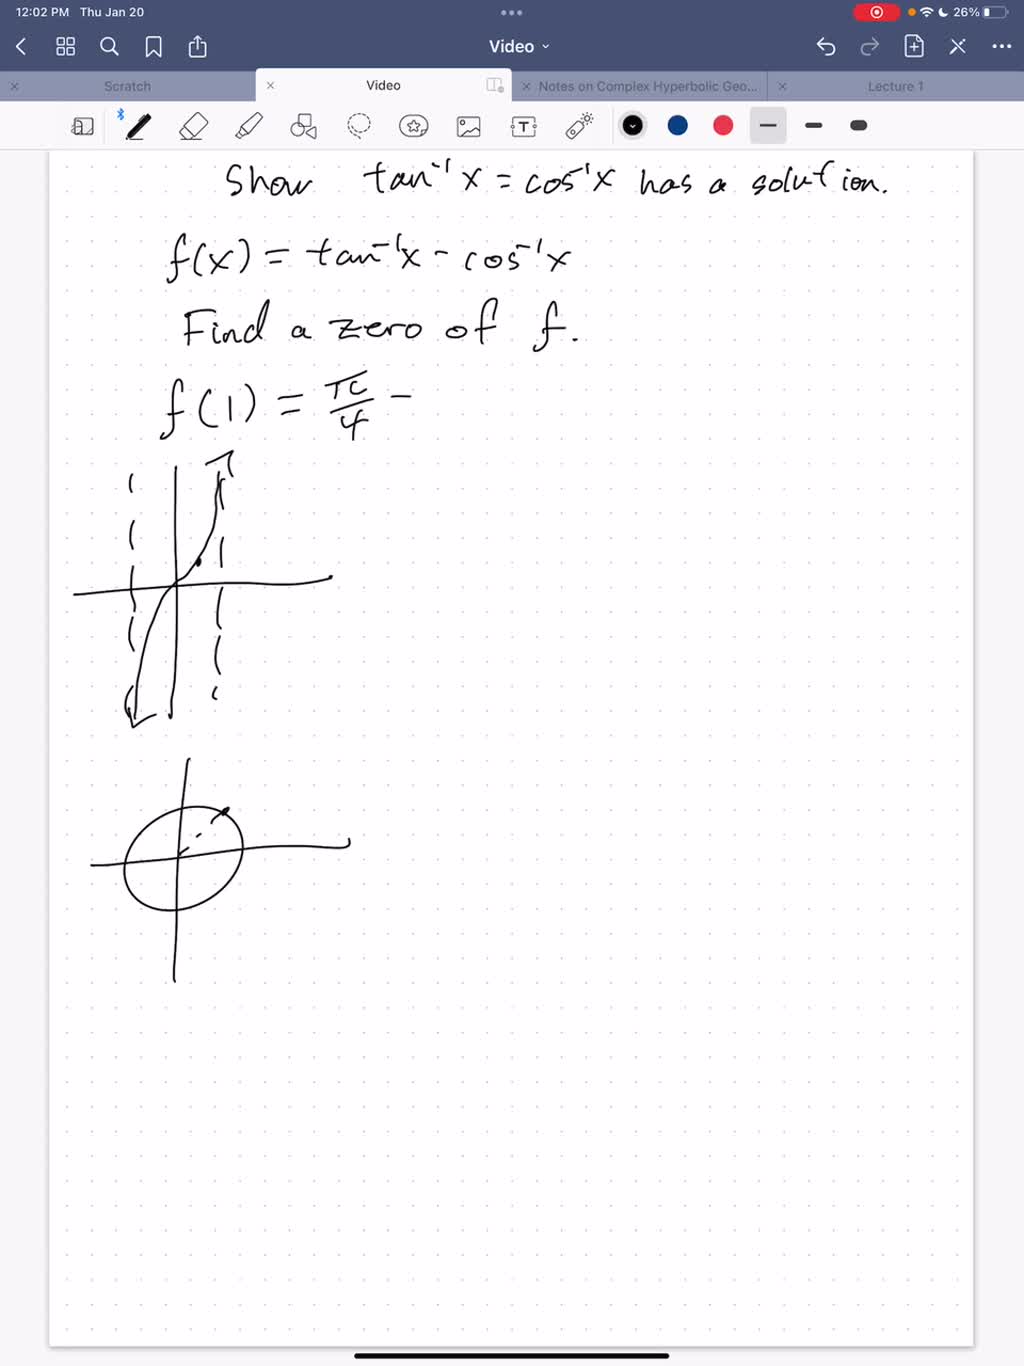 12:02 PM Thu Jan 20
26%
Video
Scratch
Video
Notes on Complex Hyperbolic Geo...
Lecture 1
T
Show tan⁻¹x = cos⁻¹x has a solution.
f(x) = tan⁻¹x - cos⁻¹x
Find a zero of f.
f(1) = π/4 -